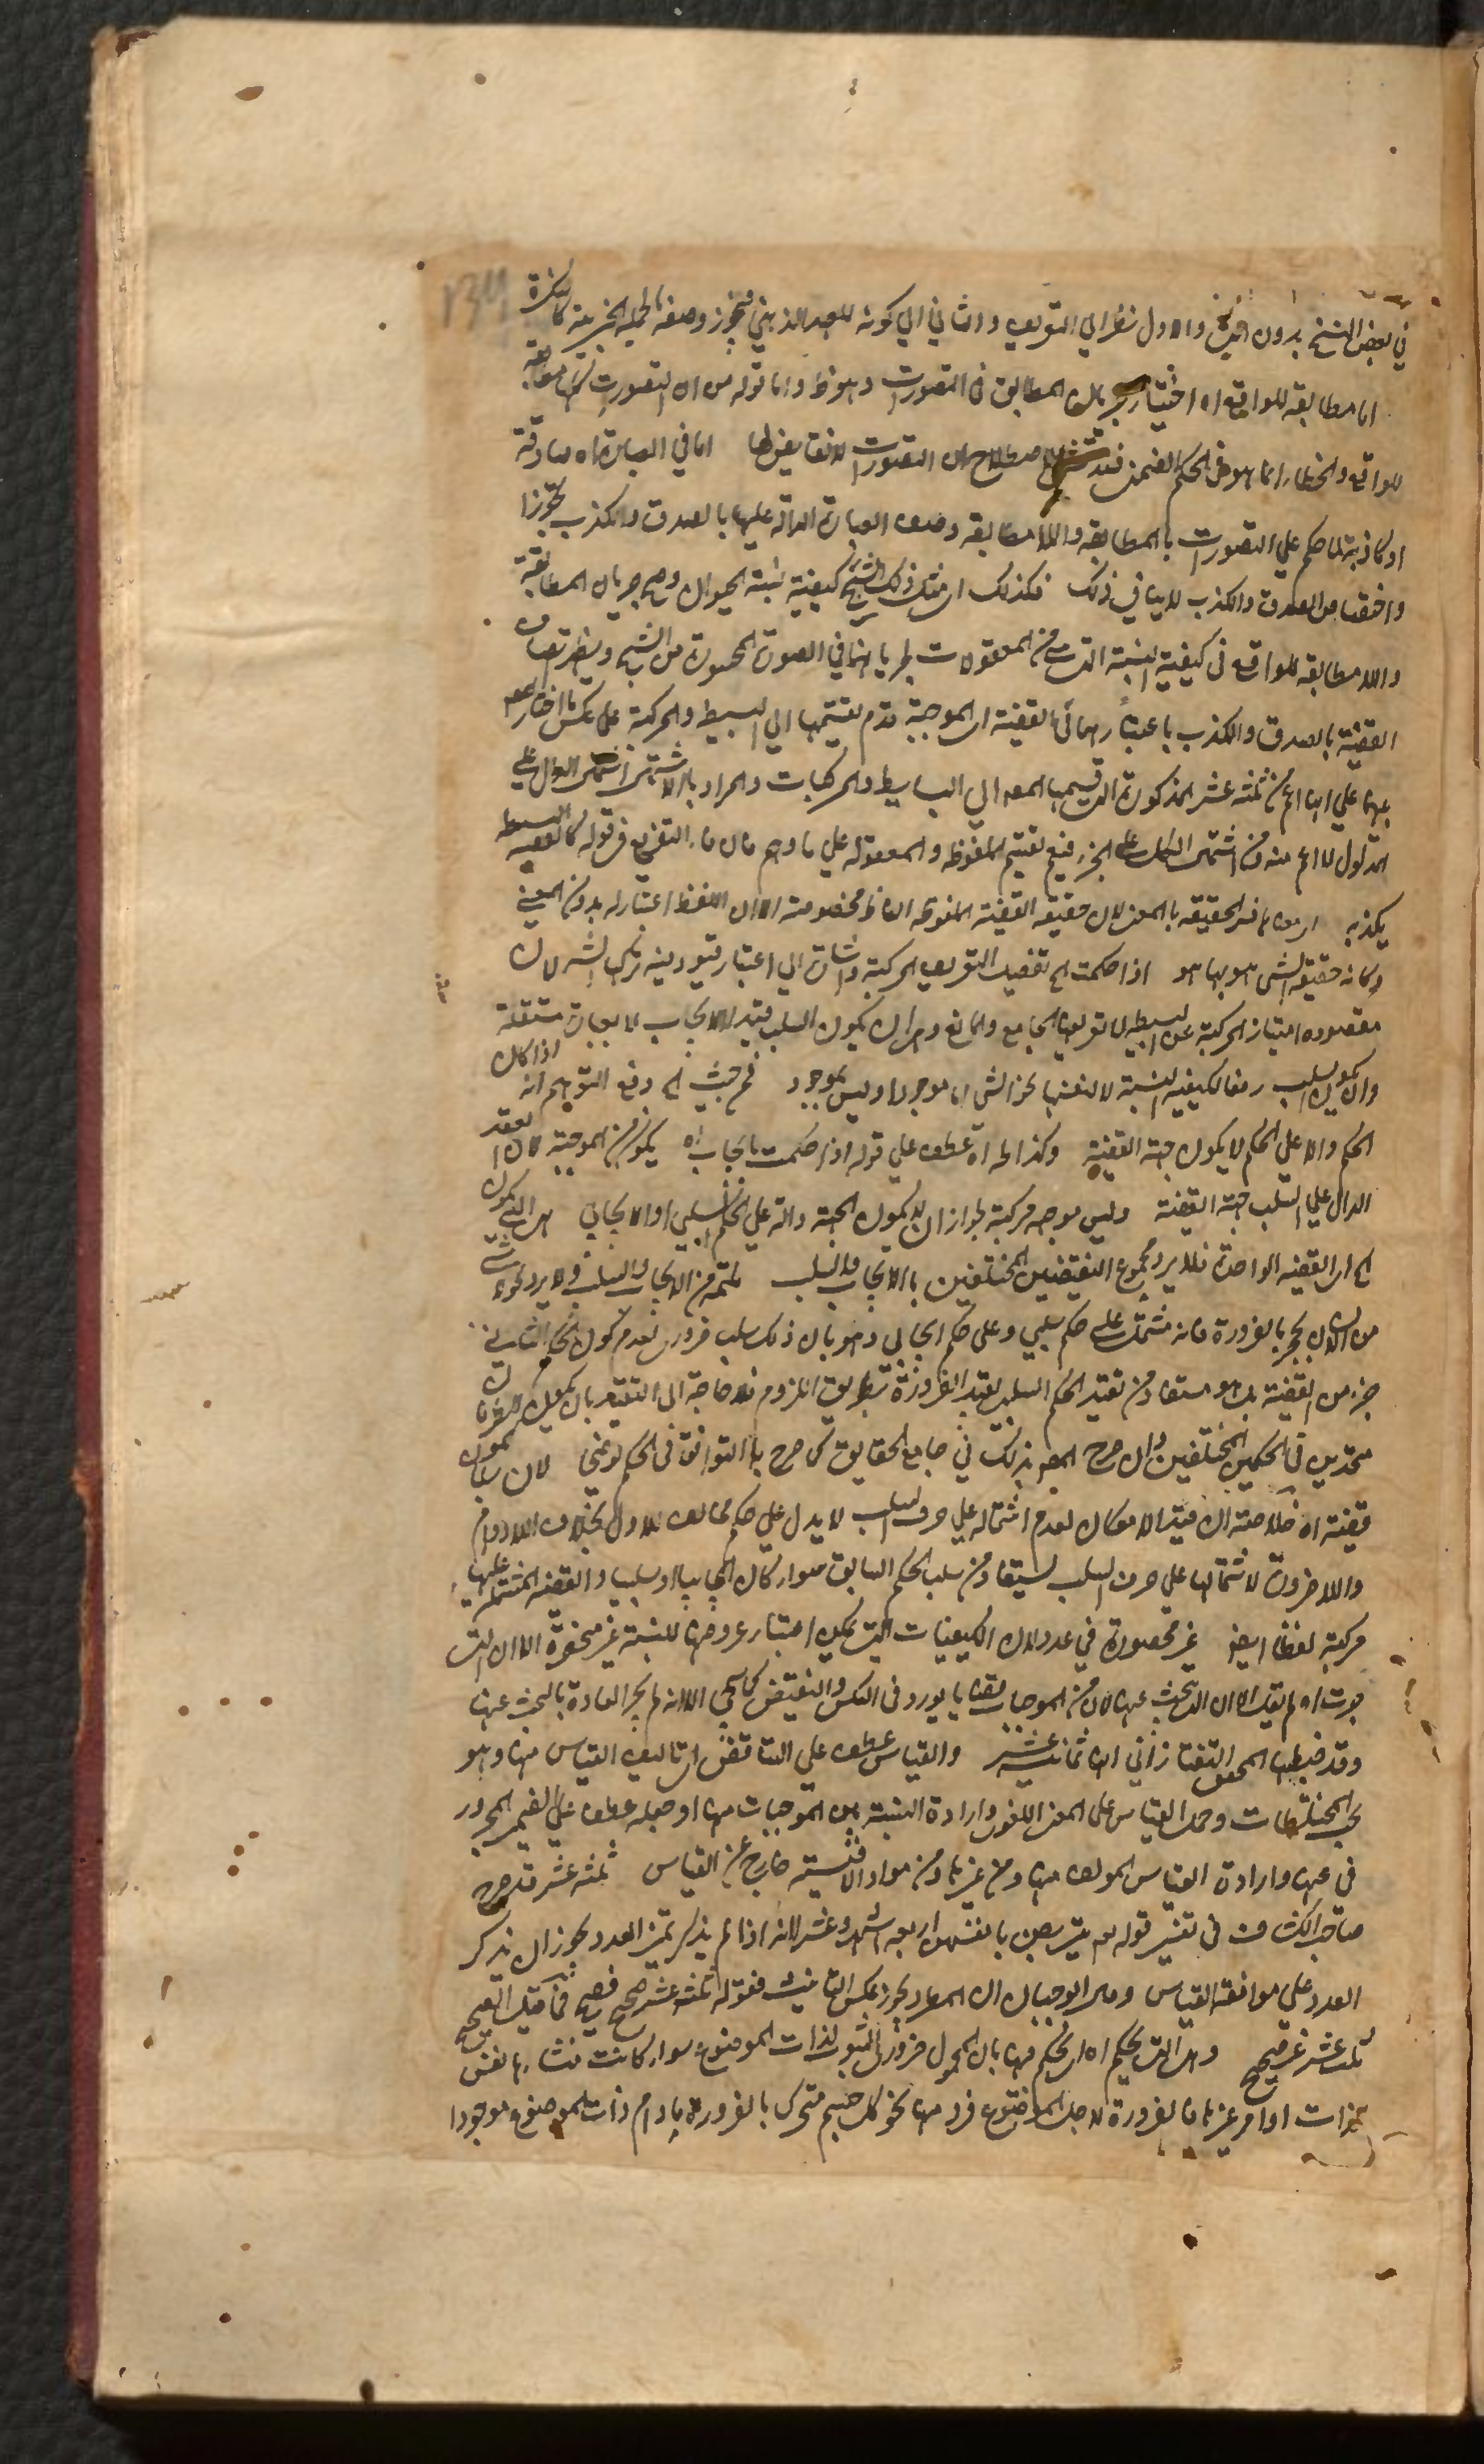 في بعض النسخ بدون والاول نظرا الي التعريف والثاني الي كونه للعهد الذهني فيجوز وصفه بالجملة الخبرية كالنكرة
اما مطابقة للواقع اه اختيار بان المطابق في التصورات وهو ظ واما قوله من ان التصورات كلها مطابقة
للواقع والخطاء انما هو في الحكم الضمني فقد الاصطلاح ان التصورات لا نقايض لها اما في العبارة اه صادقة
او كاذبة لما حكم علي التصورات بالمطابقة واللا مطابقة وصف العبارة الدالة عليها بالصدق والكذب تجوزا
واختصاص الصدق والكذب لا ينافي ذلك فكذلك اي مثل ذلك الشبح كيفية نسبة الحيوان وصح جريان المطابقة
واللا مطابقة للواقع في كيفية النسبة التي هي من المعقولات لجريانهما في الصورة المحسوسة من الشبح ويظهر اتصاف
القضية بالصدق والكذب باعتبارهما فالقضية اي الموجهة قدم تقسيمها الي البسيط والمركبة علي عكس ما اختاره المص
علي انها اعم من ثلثة عشر المذكورة التي قسمها المص الي البسايط والمركبات والمراد بالاشتمال اشتمال الدال علي
المدلول لا اعم منه ومن اشتمال الكل علي الجزء فيعم تقسيم الملفوظة والمعقولة علي ما وهم فان التفريع في قوله كالقضية البسيطة
يكذبه اي معناها فسر الحقيقة بالمعنى لان حقيقة القضية الملفوظة الفاظ مخصوصة الا ان اللفظ لا اعتبار له بدون المعنى
وكأنه حقيقة الشئ هو بها هو اذا حكمت الخ تفصيل التعريف المركبة واشارة الي اعتبار قيود فيه لان
مقصوده امتياز المركبة عن البسيطة لا تعريفها الجامع والمانع وهي ان يكون السلب قيد للايجاب لا بعبارة مستقلة
وان لا يكون السلب رفعا لكيفية النسبة لا لنفسها نحو الشئ اما موجود او ليس بموجود فمن حيث الخ دفع التوهم انه اذا كان
الحكم دالا علي الحكم لا يكون جهة القضية وكذا لما اه عطف علي قوله اذا حكمت بايجاب اه يكون من الموجهة لان القيد
الدال علي السلب جهة القضية وليس موجهة مركبة لجواز ان لا يكون الجهة دالة علي الحكم السلبي او الايجابي هي التي يكون
الخ اي القضية الواحدة فلا يرد مجموع القضيتين المختلفين بالايجاب والسلب ملتئمة من الايجاب والسلب فلا يرد نحو لا شئ
من الانسان بحجر بالضرورة فانه مشتمل علي حكم سلبي وعلي حكم ايجابي وهو بان ذلك سلب ضروري لعدم كون الحكم الثاني
جزء من القضية بل هو مستفاد من تقييد الحكم السلبي بقيد الضرورة بطريق اللزوم فلا حاجة الي التقييد بان يكون الطرفان
متحدين في الحكمين المختلفين وان صرح المص بذلك في جامع الحقايق كما صرح بالتوافق في الحكم توضيح لان يكون
قضية اه خلاصته ان قيد الامكان لعدم اشتماله علي حرف السلب لا يدل علي حكم مخالف للاول بخلاف اللا دوام
واللا ضرورة لاشتمالها علي حرف السلب يستفاد من سلب الحكم السابق سواء كان ايجابيا او سلبيا والقضية المشتملة عليها
مركبة لفظا ايضا غير محصورة في عدد لان الكيفيات التي يمكن اعتبار عروضها للنسبة غير منحصرة الا ان التي
جرت اه لم يقل الا ان الذي يبحث عنها لان من الموجهات بقايا يورد في العكس والنقيض كما سيجي الا انه لم يجر العادة بالبحث عنها
وقد ضبطها المحقق التفتازاني انها ثمانية عشر والقياس عطف علي التناقض اي تأليف القياس منها وهو
بحث المختلطات وحمل القياس علي المعنى اللغوي وارادة النسبة بين الموجهات منها او جعله عطف علي الضمير المجرور
في عنها وارادة القياس المؤلف منها ومن غيرها من مواد الاقيسة خارج عن القياس ثلثة عشر قد صرح
صاحب الكشاف في تفسير قوله تع يتربصن بانفسهن اربعة اشهر وعشرا لانه اذا لم يذكر تميز العدد يجوز ان يذكر
العدد علي موافقة القياس وهي ابو حيان ان المعدود يجوز عكس التانيث فقوله ثلثة عشر صحيح فصيح فما قيل الصحيح
ثلث عشر غير صحيح وهي التي يحكم اه اي يحكم فيها بان المحمول ضروري الثبوت لذات الموضوع سواء كانت منشاءها نفس
الذات او امر غيرها فالضرورة لاجل الموضوع فرد منها نحو كل جسم متحرك بالضرورة ما دام ذات الموضوع موجودا